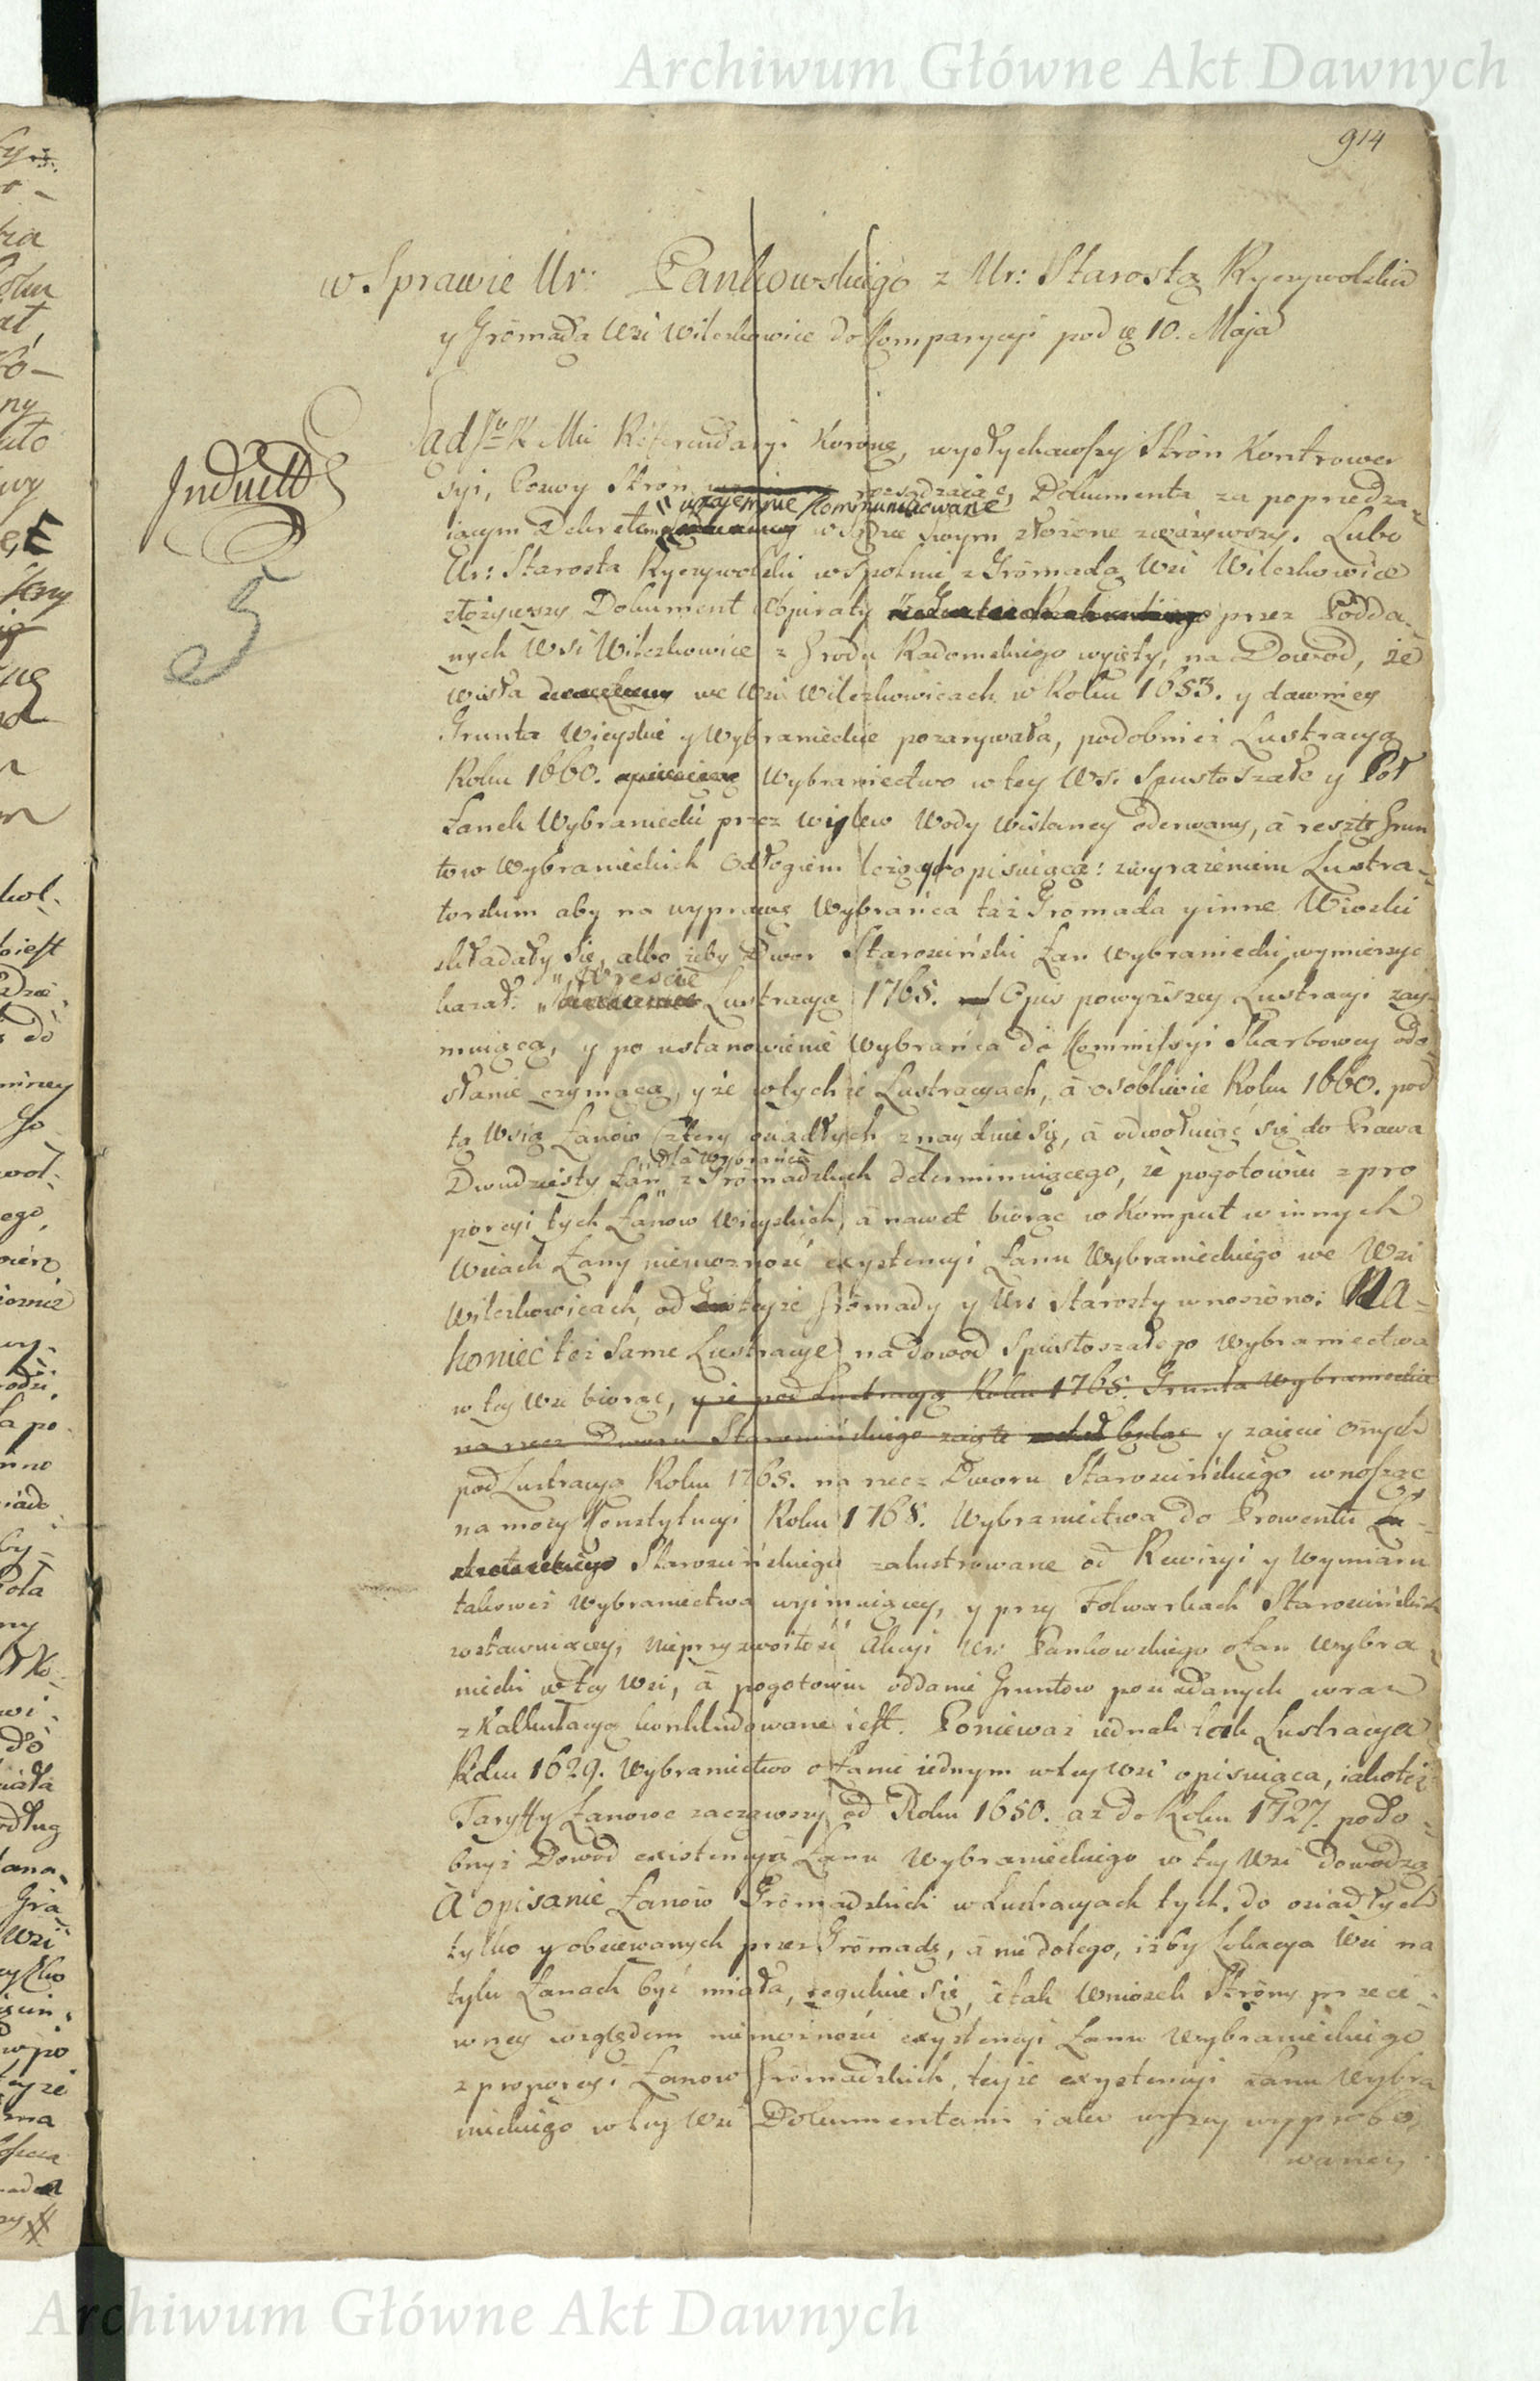 Archiwum Główne Akt Dawnych
914
w Sprawie Ur: Pankowskiego z Ur: Starostą Ryczywolskim
y Gromadą Wsi Wilczkowice do Komparycyi pod d. 10. Maja
Indukt
5
Sąd J. K. Mci Referendaryi Koronney, wysłychawszy Stron Kontrower
syi, Pozwy Stron rozsądzaiąc, Dokumenta za poprzedza-
wzajemnie kommunikowane
iącym Dekretem w Sądzie swym złożone zważywszy. Lubo
Ur: Starosta Ryczywolski wspolnie z Gromadą Wsi Wilczkowice
złożywszy Dokument Oblaty przez Podda-
nych Wsi Wilczkowice z Grodu Radomskiego wyięty, na Dowod, że
Wisła we Wsi Wilczkowicach w Roku 1653. y dawniey
Grunta Wieyskie y Wybranieckie pozarywała, podobnież Lustracyą
Roku 1660. Wybraniectwo w tey Wsi Spustoszałe y Poł
Łanek Wybraniecki przez wylew Wody wiślaney oderwany, á resztę Grun
tow Wybranieckich Odłogiem leżącą opisuiącą: z wyrażeniem Lustra-
torskim aby na wyprawę Wybrańca taż Gromada y inne Wioski
składały się, albo żeby Dwor Starościński Łan wybraniecki wymierzyć
„Wreście
kazał: Lustracyą 1765. Opis powyższey Lustracyi zay-
muiącą, y po ustanowienie Wybrańca do Kommissyi Skarbowey ode-
słanie czyniącą, y że w tychże Lustracyach, á osobliwie Roku 1660. pod
tą Wsią Łanów Cztery osiadłych znayduie się, á odwołuiąc się do Prawa
dla Wybrańca
Dwudziesty Łan „z Gromadzkich determinuiącego, że pogotowiu z pro
porcyi tych Łanow Wieyskich, á nawet biorąc w Komput w innych
Wsiach Łany niemożność exystencyi Łanu Wybranieckiego we Wsi
Wilczkowicach, od teyże Gromady y Ur: Starosty wnoszono: Na-
koniec też same Lustracye na dowod Spustoszałego Wybraniectwa
w tey Wsi biorąc, y że pod Lustracyą Roku 1765. Grunta Wybranieckie
na rzecz Dworu Starościńskiego zaięte y zaięcie onych
pod Lustracyą Roku 1765. na rzecz Dworu Starościńskiego wnosząc
na mocy Konstytucyi Roku 1768. Wybraniectwa do Prowentu
Starościńskiego zalustrowane od Rewizyi y Wymiaru
takowe Wybraniectwa wyimuiącey, y przy Folwarkach Starościńskich
zostawuiącey, nieprzyzwoitość Akcyi Ur: Pankowskiego o Łan Wybra-
niecki w tey Wsi, á pogotowiu oddanie Gruntow posiadanych wraz
z Kalkulacyą konkludowane iest. Ponieważ iednak iak Lustracya
Roku 1629. Wybraniectwo o Łanie iednym w tey Wsi opisuiąca, iakoteż
Taryffy Łanowe zacząwszy od Roku 1650. aż do Roku 1727. podo-
bnyż Dowod existencyi Łanu Wybranieckiego w tey Wsi dowodzą
á opisanie Łanów Gromadzkich w Lustracyach tych, do osiadłych
tylko y obsiewanych przez Gromadę, á nie dotego, iżby Lokacya Wsi na
tylu Łanach być miała, reguluie się, á tak Wniosek Strony przeci-
wney względem niemożności exystencyi Łanu Wybranieckiego
z proporcyi Łanow Gromadzkich, teyże exystencyi Łanu Wybra
nieckiego w tey Wsi Dokumentami iako wyżey wyprobo-
waney
Archiwum Główne Akt Dawnych